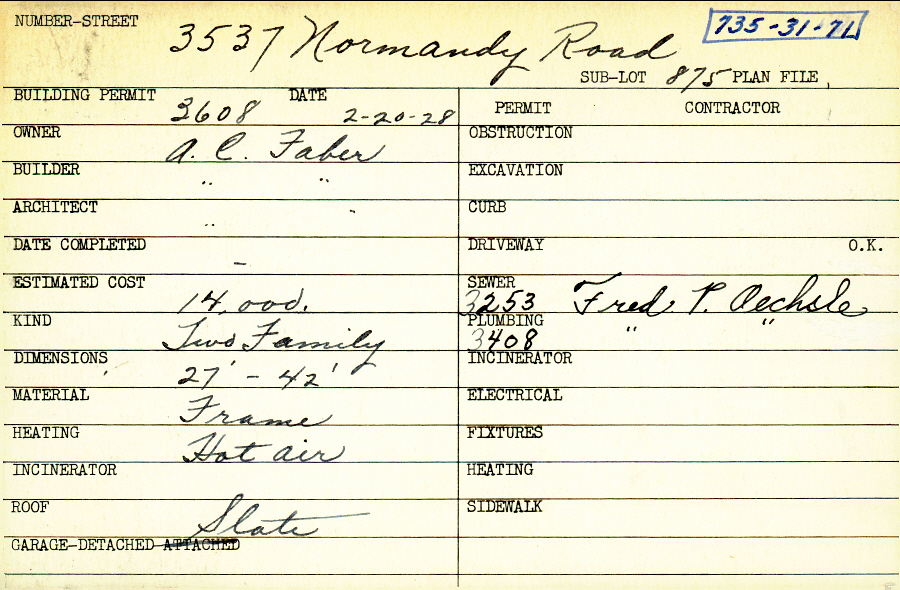 NUMBER-STREET 3537 Normandy Road 735-31-71
SUB-LOT 875 PLAN FILE
BUILDING PERMIT 3608 DATE 2-20-28
PERMIT CONTRACTOR
OWNER A. C. Faber
OBSTRUCTION
BUILDER " "
EXCAVATION
ARCHITECT " "
CURB
DATE COMPLETED –
DRIVEWAY O.K.
ESTIMATED COST 14,000.
SEWER 3253 Fred P. Oechsle
KIND Two Family
PLUMBING 3408 " "
DIMENSIONS 27' - 42'
INCINERATOR
MATERIAL Frame
ELECTRICAL
HEATING Hot air
FIXTURES
INCINERATOR
HEATING
ROOF Slate
SIDEWALK
GARAGE-DETACHED-ATTACHED